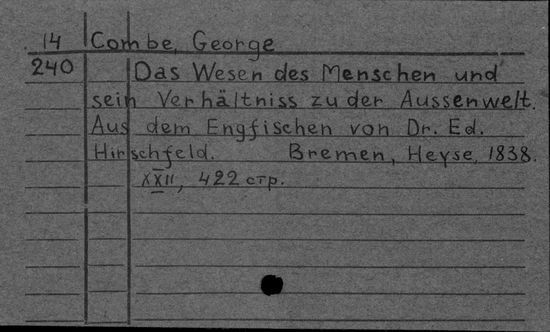 14 Combe, George
240 Das Wesen des Menschen und
sein Verhältniss zu der Aussenwelt.
Aus dem Engfischen von Dr. Ed.
Hirschfeld. Bremen, Heyse, 1838.
XXII, 422 стр.